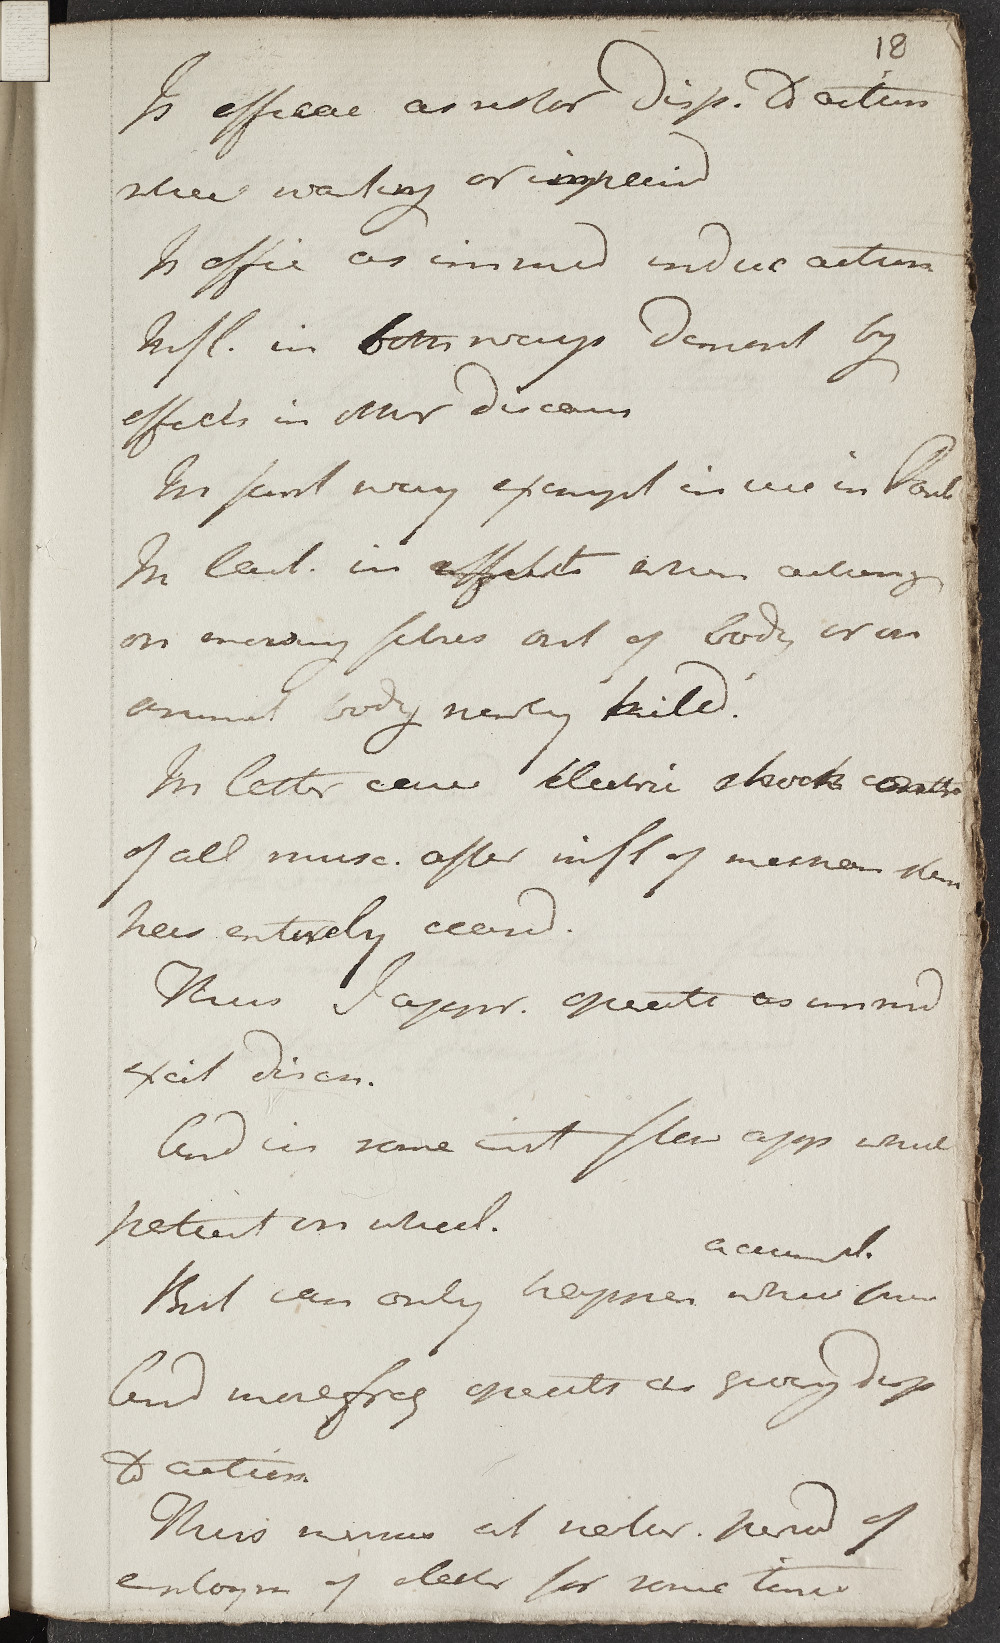 18
Is efficac as restor Disp. to action
when wanting or impaird
Is effic as immed induc action
Infl. in both ways Demonst by
effects in other diseases
In first way exempl in use in Paral
In last. in effects when acting
on moving fibres out of body or on
animal body newly killd.
In latter case Electric shock contr
of all musc. after infl of mechan stim
has entirely ceasd.
Thus I appr. operate as immed
excit disch.
And in some inst flow app while
patient on wheel.
accumul.
But can only happen when
And more freq operate as giving disp
to action
This menses at natur. period of
employm of electr for some time